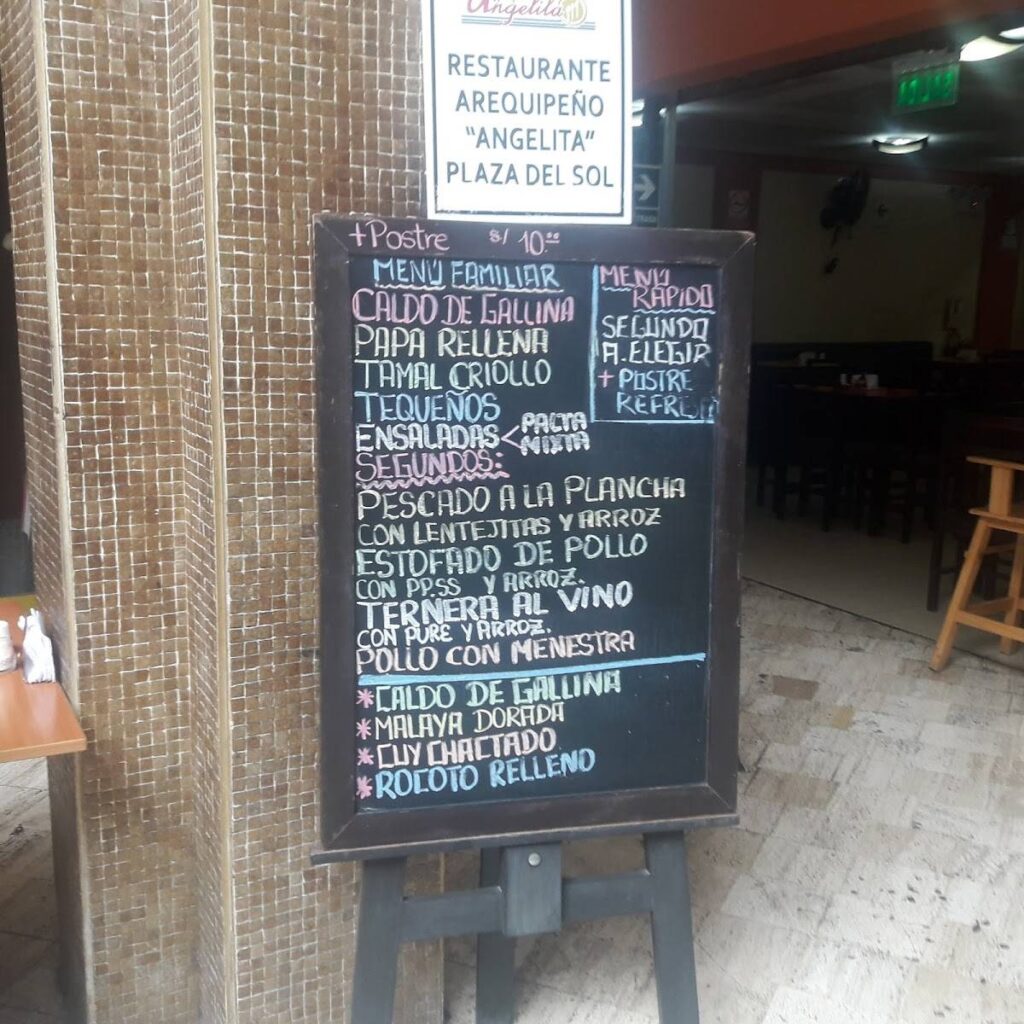 Angelita
RESTAURANTE
AREQUIPEÑO
"ANGELITA"
PLAZA DEL SOL
+Postre S/ 10.00
MENÚ FAMILIAR
CALDO DE GALLINA
PAPA RELLENA
TAMAL CRIOLLO
TEQUEÑOS
ENSALADAS < PALTA
MIXTA
SEGUNDOS:
PESCADO A LA PLANCHA
CON LENTEJITAS Y ARROZ
ESTOFADO DE POLLO
CON PP.SS Y ARROZ.
TERNERA AL VINO
CON PURE Y ARROZ.
POLLO CON MENESTRA
* CALDO DE GALLINA
* MALAYA DORADA
* CUY CHACTADO
* ROCOTO RELLENO
MENÚ
RAPIDO
SEGUNDO
A.ELEGIR
+ POSTRE